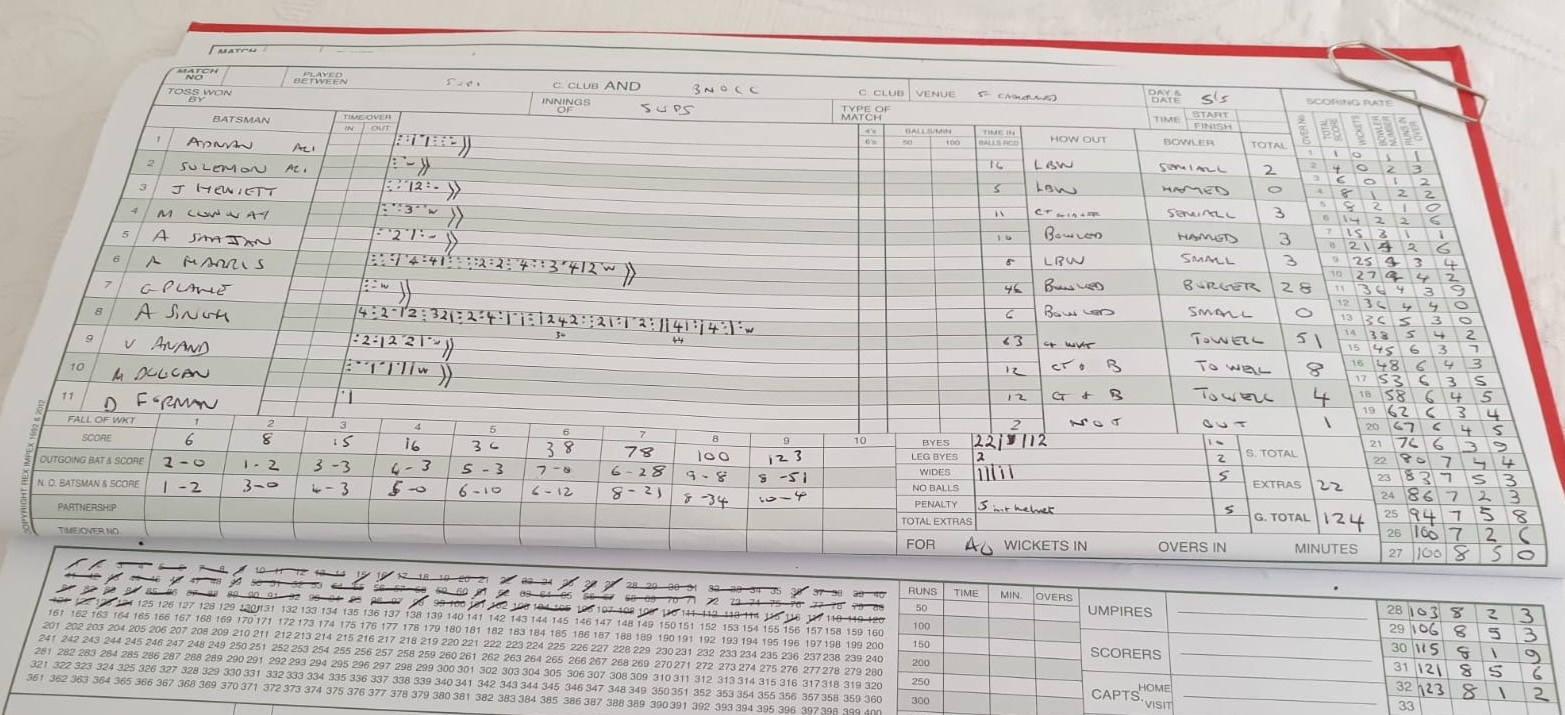 MATCH
MATCH NO PLAYED BETWEEN C. CLUB AND 3NOCC C. CLUB VENUE DAY & DATE 5/5 SCORING RATE
TOSS WON BY INNINGS OF SUPS TYPE OF MATCH TIME START FINISH
BATSMAN TIME/OVER IN OUT 4's 6's BALLS/MIN 50 100 TIME IN BALLS RCD HOW OUT BOWLER TOTAL OVER No. TOTAL SCORE WICKETS BOWLER NUMBER RUNS IN OVER
1 ADNAN ALI 16 LBW SEMIALL 2
2 SULEMON ALI 5 LBW HAMED 0
3 J HEWIETT 11 CT SEMIALL 3
4 M CONWAY 10 BOWLED HAMED 3
5 A SAAJAN 8 LBW SMALL 3
6 A HARRIS 46 BOWLED BURGER 28
7 G PLANE 6 BOWLED SMALL 0
8 A SINGH 63 CT WKT TOWELL 51
9 V ANAND 12 CT & B TOWELL 8
10 M DUGGAN 12 CT & B TOWELL 4
11 D FORMAN 2 NOT OUT 1
1 1 0 1 1
2 4 0 2 3
3 6 0 1 2
4 8 1 2 2
5 8 2 1 0
6 14 2 2 6
7 15 3 1 1
8 21 4 2 6
9 25 4 3 4
10 27 4 4 2
11 36 4 3 9
12 36 4 4 0
13 36 5 3 0
14 38 5 4 2
15 45 6 3 7
16 48 6 4 3
17 53 6 3 5
18 58 6 4 5
19 62 6 3 4
20 67 6 4 5
21 76 6 3 9
22 80 7 4 4
23 83 7 5 3
24 86 7 2 3
25 94 7 5 8
26 100 7 2 6
27 100 8 5 0
FALL OF WKT 1 2 3 4 5 6 7 8 9 10
SCORE 6 8 15 16 36 38 78 100 123
OUTGOING BAT & SCORE 2-0 1-2 3-3 4-3 5-3 7-0 6-28 9-8 8-51
N. O. BATSMAN & SCORE 1-2 3-0 4-3 5-0 6-10 6-12 8-21 8-34 10-4
PARTNERSHIP
TIME/OVER NO.
COPYRIGHT REX IMPEX 1992 & 2012
BYES 10 S. TOTAL
LEG BYES 2 2
WIDES 5 EXTRAS 22
NO BALLS
PENALTY 5 hit helmet 5 G. TOTAL 124
TOTAL EXTRAS
FOR ALL WICKETS IN OVERS IN MINUTES
125 126 127 128 129 130 131 132 133 134 135 136 137 138 139 140 141 142 143 144 145 146 147 148 149 150 151 152 153 154 155 156 157 158 159 160
161 162 163 164 165 166 167 168 169 170 171 172 173 174 175 176 177 178 179 180 181 182 183 184 185 186 187 188 189 190 191 192 193 194 195 196 197 198 199 200
201 202 203 204 205 206 207 208 209 210 211 212 213 214 215 216 217 218 219 220 221 222 223 224 225 226 227 228 229 230 231 232 233 234 235 236 237 238 239 240
241 242 243 244 245 246 247 248 249 250 251 252 253 254 255 256 257 258 259 260 261 262 263 264 265 266 267 268 269 270 271 272 273 274 275 276 277 278 279 280
281 282 283 284 285 286 287 288 289 290 291 292 293 294 295 296 297 298 299 300 301 302 303 304 305 306 307 308 309 310 311 312 313 314 315 316 317 318 319 320
321 322 323 324 325 326 327 328 329 330 331 332 333 334 335 336 337 338 339 340 341 342 343 344 345 346 347 348 349 350 351 352 353 354 355 356 357 358 359 360
361 362 363 364 365 366 367 368 369 370 371 372 373 374 375 376 377 378 379 380 381 382 383 384 385 386 387 388 389 390 391 392 393 394 395 396 397 398 399 400
RUNS TIME MIN. OVERS
50
100
150
200
250
300
UMPIRES
SCORERS
CAPTS. HOME VISIT
28 103 8 2 3
29 106 8 5 3
30 115 8 1 9
31 121 8 5 6
32 123 8 1 2
33